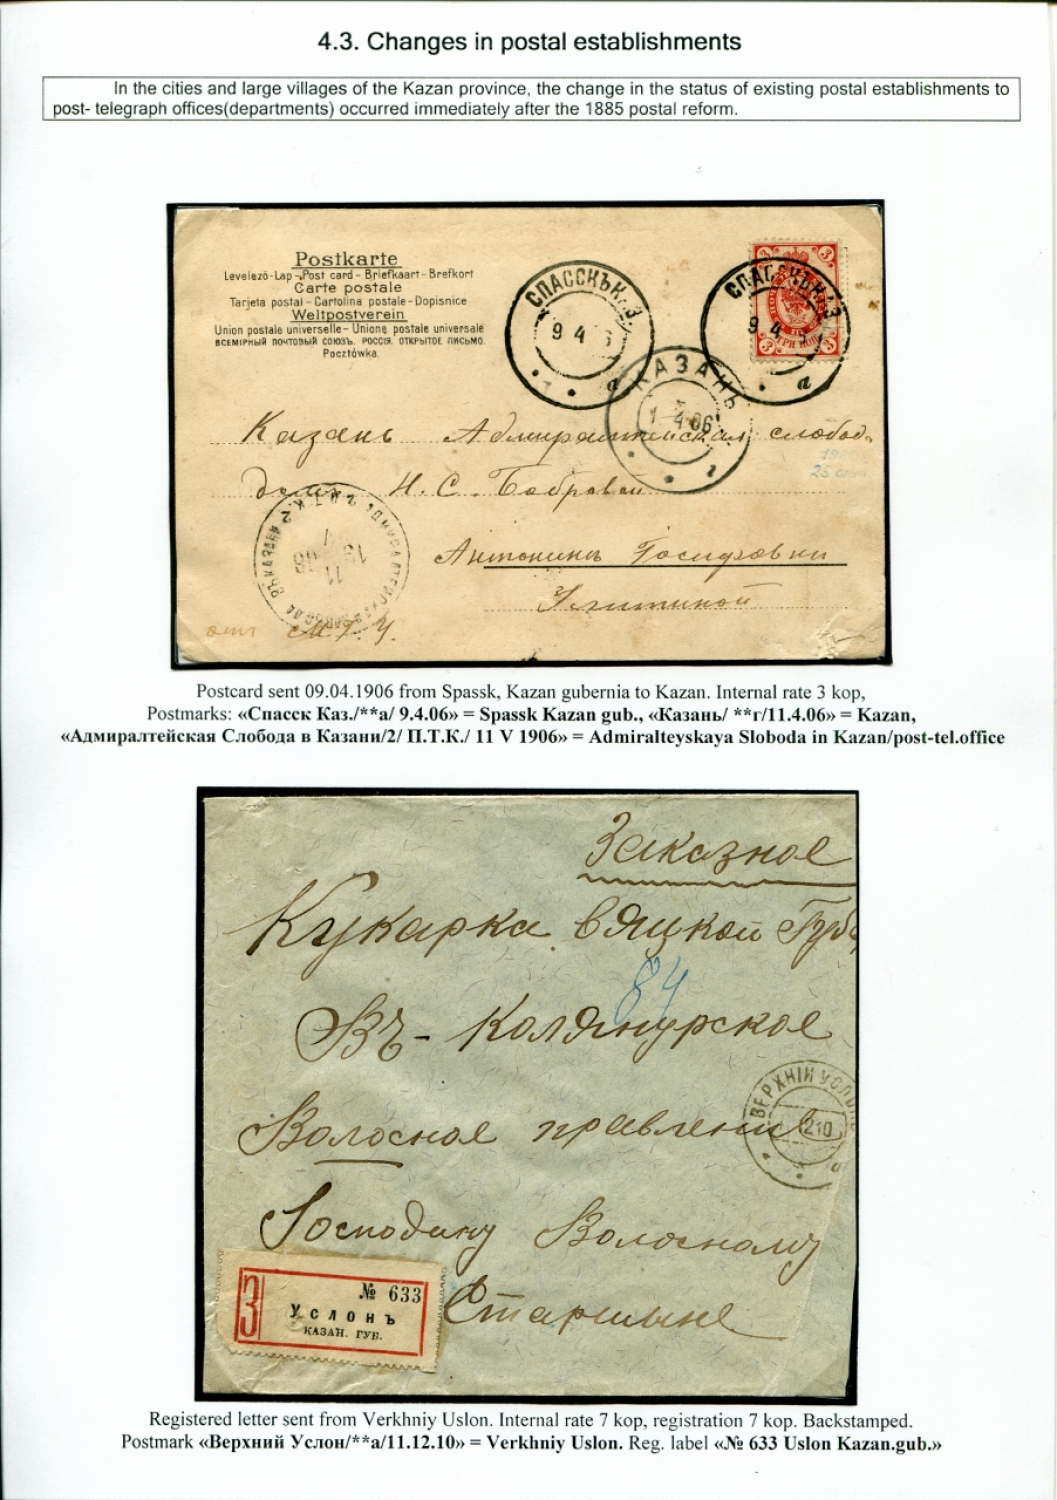 4.3. Changes in postal establishments
In the cities and large villages of the Kazan province, the change in the status of existing postal establishments to
post- telegraph offices(departments) occurred immediately after the 1885 postal reform.
Postkarte
Levelező-Lap - Post card - Briefkaart - Brefkort
Carte postale
Tarjeta postal - Cartolina postale - Dopisnice
Weltpostverein
Union postale universelle - Unione postale universale
ВСЕМІРНЫЙ ПОЧТОВЫЙ СОЮЗЪ. РОССІЯ. ОТКРЫТОЕ ПИСЬМО.
Pocztówka.
СПАССКЪ КАЗ.
9 4 6
а
СПАССКЪ КАЗ.
9 4
а
КАЗАНЬ
4 06
г
Казань Адмиралтейская слобод.
домъ Н. С. Бобровой
Антонинъ Іосифовни
Улитиной
Postcard sent 09.04.1906 from Spassk, Kazan gubernia to Kazan. Internal rate 3 kop,
Postmarks: «Спасск Каз./**а/ 9.4.06» = Spassk Kazan gub., «Казань/ **г/11.4.06» = Kazan,
«Адмиралтейская Слобода в Казани/2/ П.Т.К./ 11 V 1906» = Admiralteyskaya Sloboda in Kazan/post-tel.office
Заказное
Кукарка Вяцкой Губ
84
Въ - Колянурское
ВЕРХНІЙ УСЛОНЪ
12 10
а
Волосное правление
Господину Волосному
Старшыне
З
№ 633
УСЛОНЪ
КАЗАН. ГУБ.
Registered letter sent from Verkhniy Uslon. Internal rate 7 kop, registration 7 kop. Backstamped.
Postmark «Верхний Услон/**а/11.12.10» = Verkhniy Uslon. Reg. label «№ 633 Uslon Kazan.gub.»